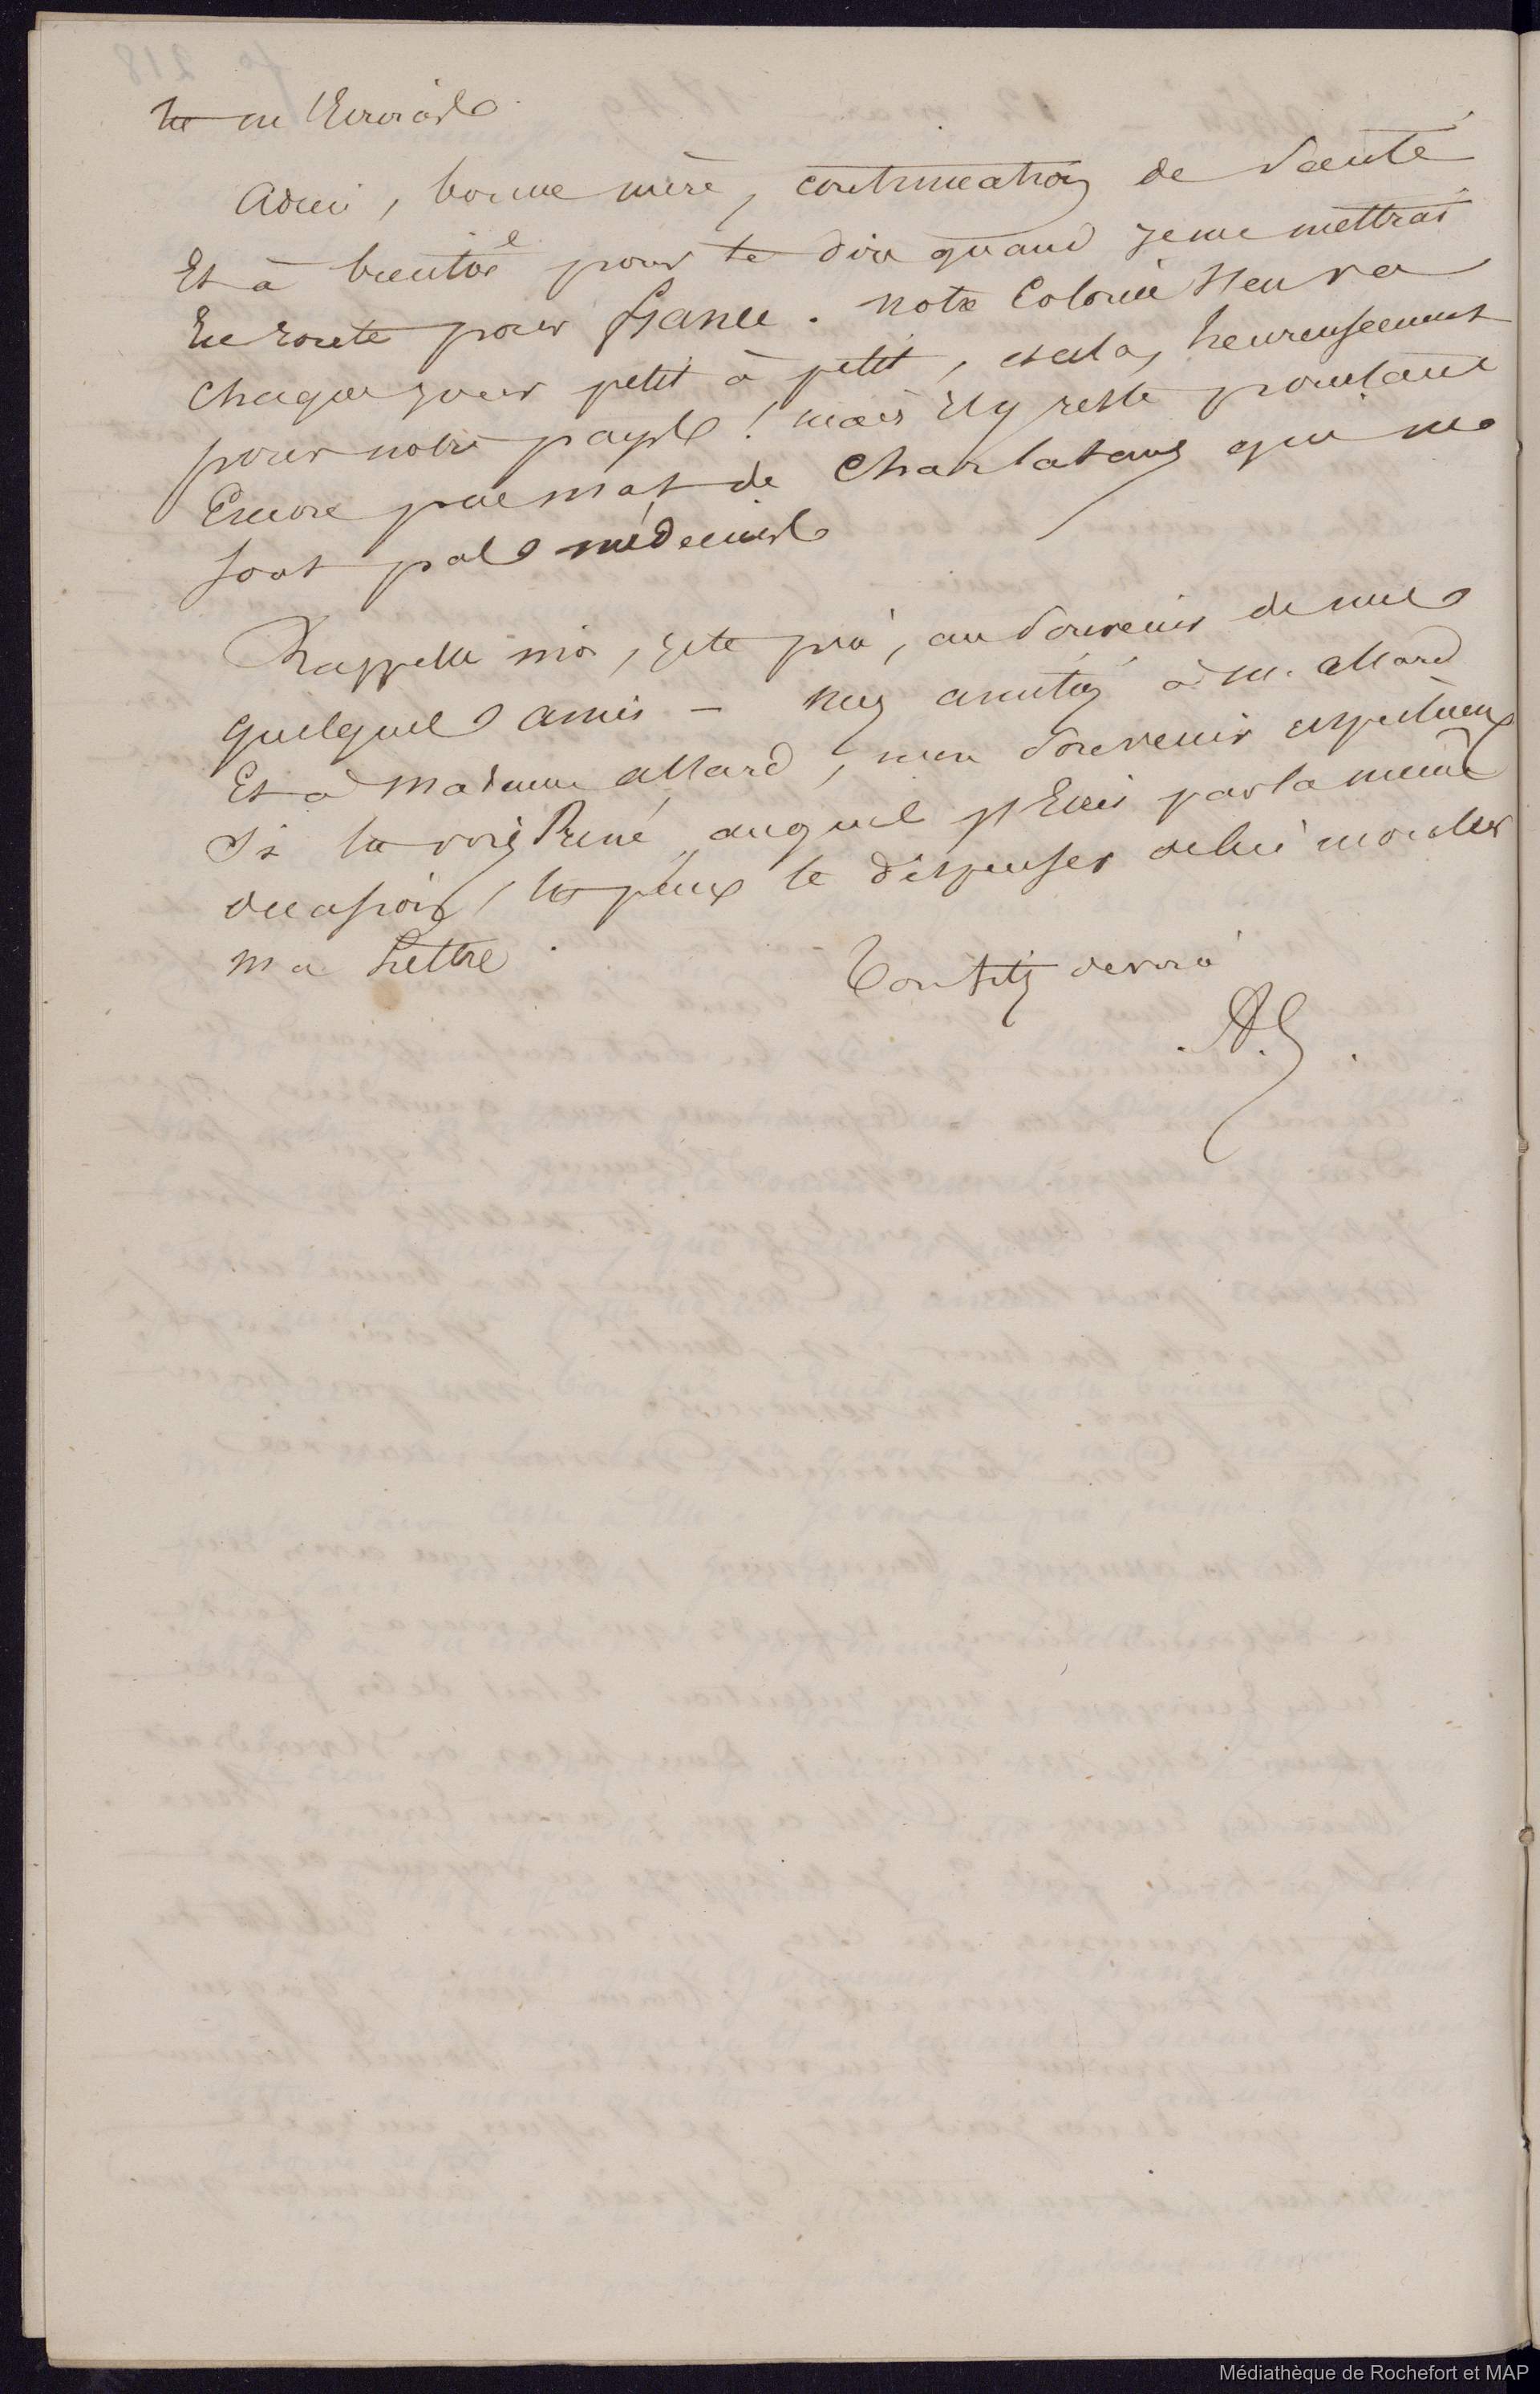 tu m'écriras
adieu, bonne mère, continuation de santé
Et à bientôt pour te dire quand je me mettrai
En route pour france. notre Colonie s'en va
chaque jour petit à petit, et cela, heureusement
pour notre pays ! mais il y reste pourtant
Encore pas mal de charlatans qui ne
sont pas médecins
Rappelle moi, je te prie, au souvenir de mes
quelques amis – mes amitiés à M. allard
Et à Madame allard, mon souvenir respectueux
si tu vois René auquel j'Ecris par la même
occasion, tu peux te dispenser de lui montrer
ma Lettre.
Ton fils dévoué
A.
Médiathèque de Rochefort et MAP